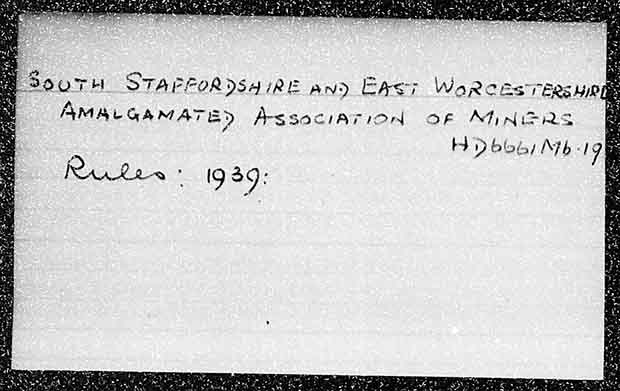 SOUTH STAFFORDSHIRE AND EAST WORCESTERSHIRE
AMALGAMATED ASSOCIATION OF MINERS
HD6661M6.19
Rules: 1939: